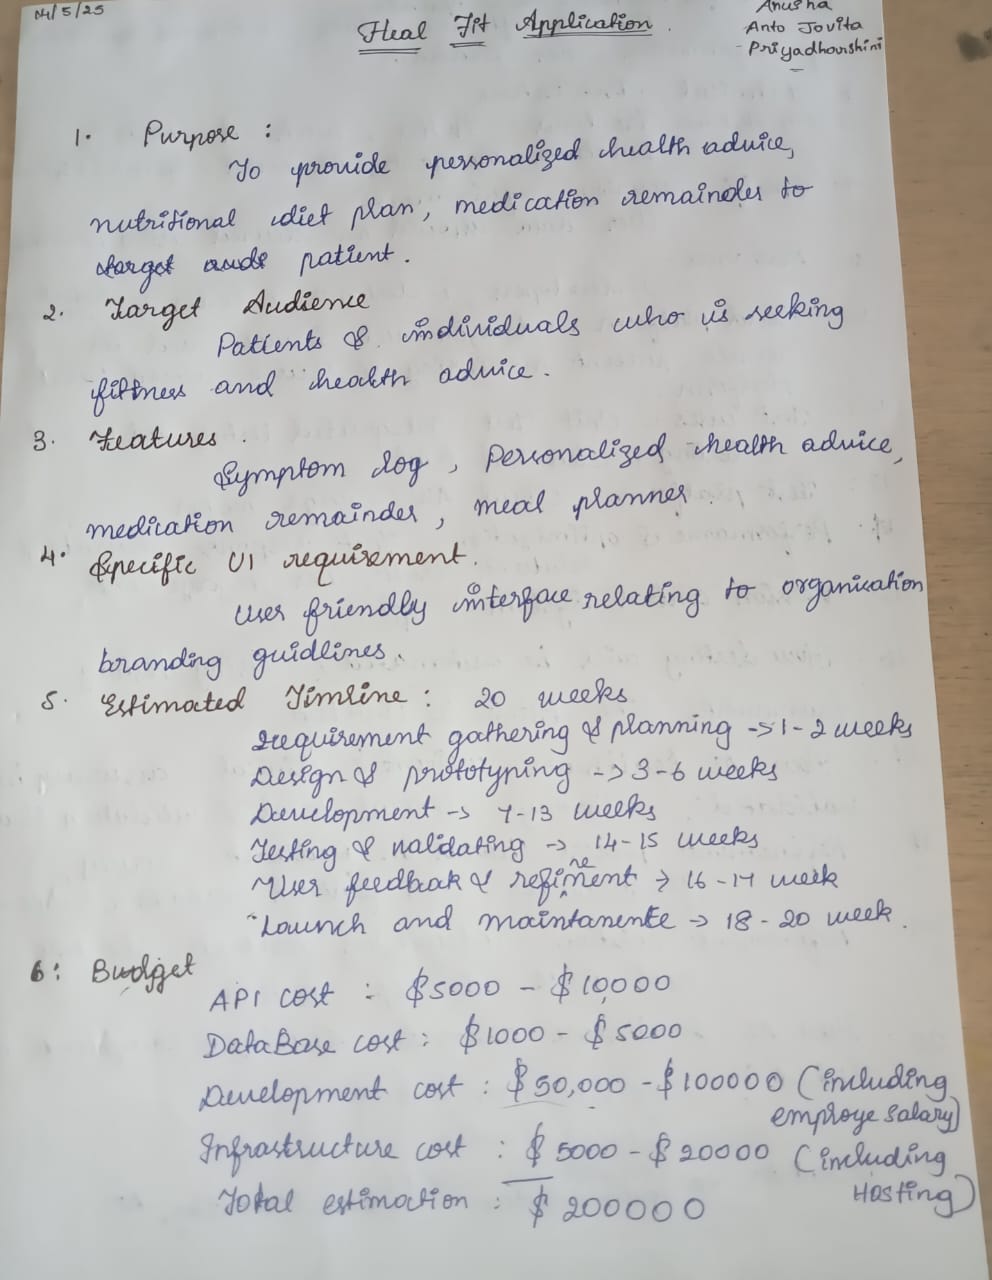 14/5/25
Heal Fit Application.
Anusha
Anto Jovita
- Priyadharshini
1. Purpose :
To provide personalized health advice,
nutritional diet plan, medication remainder to
target patient.
2. Target Audience
Patients & individuals who is seeking
fittness and health advice.
3. Features.
Symptom log, Personalized health advice,
medication remainder, meal planner
4. Specific UI requirement.
User friendly interface relating to organisation
branding guidlines.
5. Estimated Timline : 20 weeks
requirement gathering & planning -> 1-2 weeks
Design & prototyping -> 3-6 weeks
Development -> 7-13 weeks
Testing & validating -> 14-15 weeks
User feedback & refinement -> 16-17 week
Launch and maintanence -> 18-20 week.
6: Budget
API cost : $5000 - $10,000
DataBase cost : $1000 - $5000
Development cost : $50,000 - $100000 (including
employe salary)
Infrastructure cost : $5000 - $20000 (including
Hosting)
Total estimation : $200000